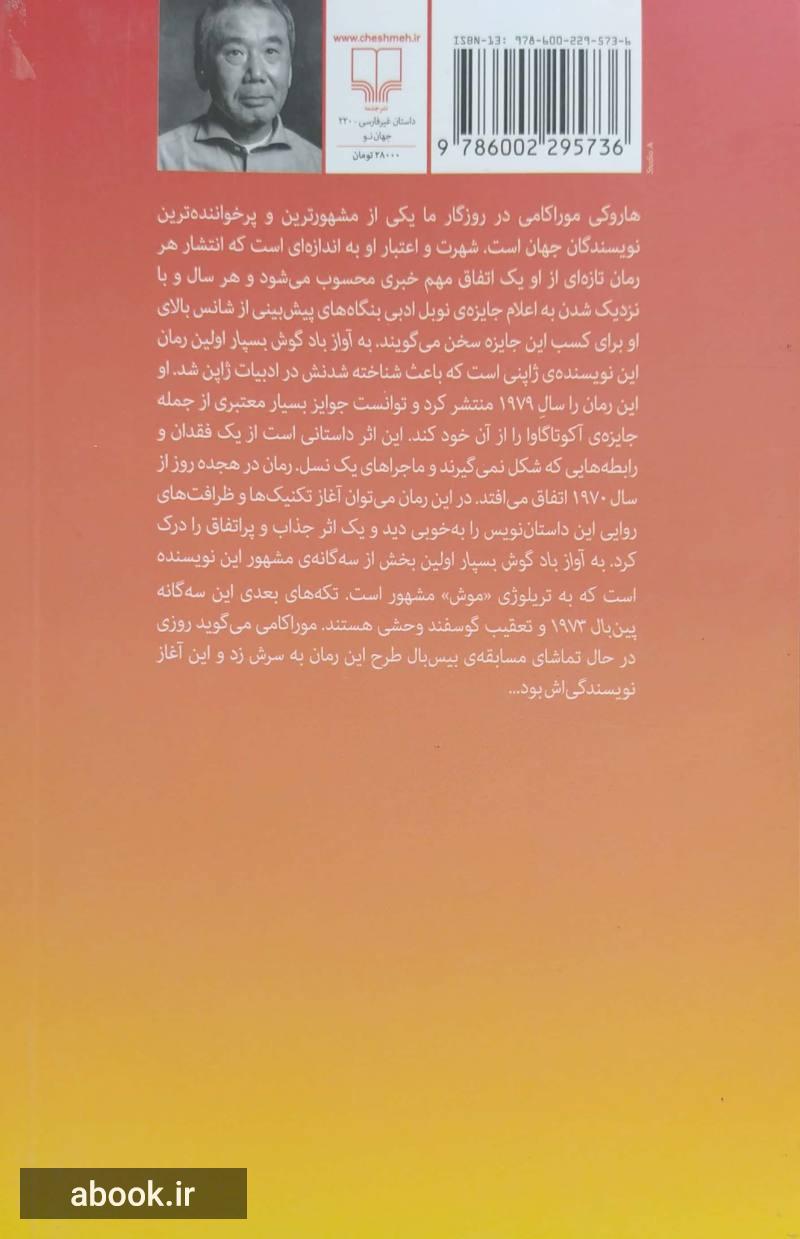 www.cheshmeh.ir
نشرچشمه
داستان غیرفارسی - ۲۲۰
جهان نـو
۲۸۰۰۰ تومان
ISBN-13: 978-600-229-573-6
9 786002 295736
Studio A
هاروکی موراکامی در روزگار ما یکی از مشهورترین و پرخواننده‌ترین
نویسندگان جهان است. شهرت و اعتبار او به اندازه‌ای است که انتشار هر
رمان تازه‌ای از او یک اتفاق مهم خبری محسوب می‌شود و هر سال و با
نزدیک شدن به اعلام جایزه‌ی نوبل ادبی بنگاه‌های پیش‌بینی از شانس بالای
او برای کسب این جایزه سخن می‌گویند. به آواز باد گوش بسپار اولین رمان
این نویسنده‌ی ژاپنی است که باعث شناخته شدنش در ادبیات ژاپن شد. او
این رمان را سالِ ۱۹۷۹ منتشر کرد و توانست جوایز بسیار معتبری از جمله
جایزه‌ی آکوتاگاوا را از آن خود کند. این اثر داستانی است از یک فقدان و
رابطه‌هایی که شکل نمی‌گیرند و ماجراهای یک نسل. رمان در هجده روز از
سال ۱۹۷۰ اتفاق می‌افتد. در این رمان می‌توان آغاز تکنیک‌ها و ظرافت‌های
روایی این داستان‌نویس را به‌خوبی دید و یک اثر جذاب و پراتفاق را درک
کرد. به آواز باد گوش بسپار اولین بخش از سه‌گانه‌ی مشهور این نویسنده
است که به تریلوژی «موش» مشهور است. تکه‌های بعدی این سه‌گانه
پین‌بال ۱۹۷۳ و تعقیب گوسفند وحشی هستند. موراکامی می‌گوید روزی
در حال تماشای مسابقه‌ی بیس‌بال طرح این رمان به سرش زد و این آغاز
نویسندگی‌اش بود...
abook.ir